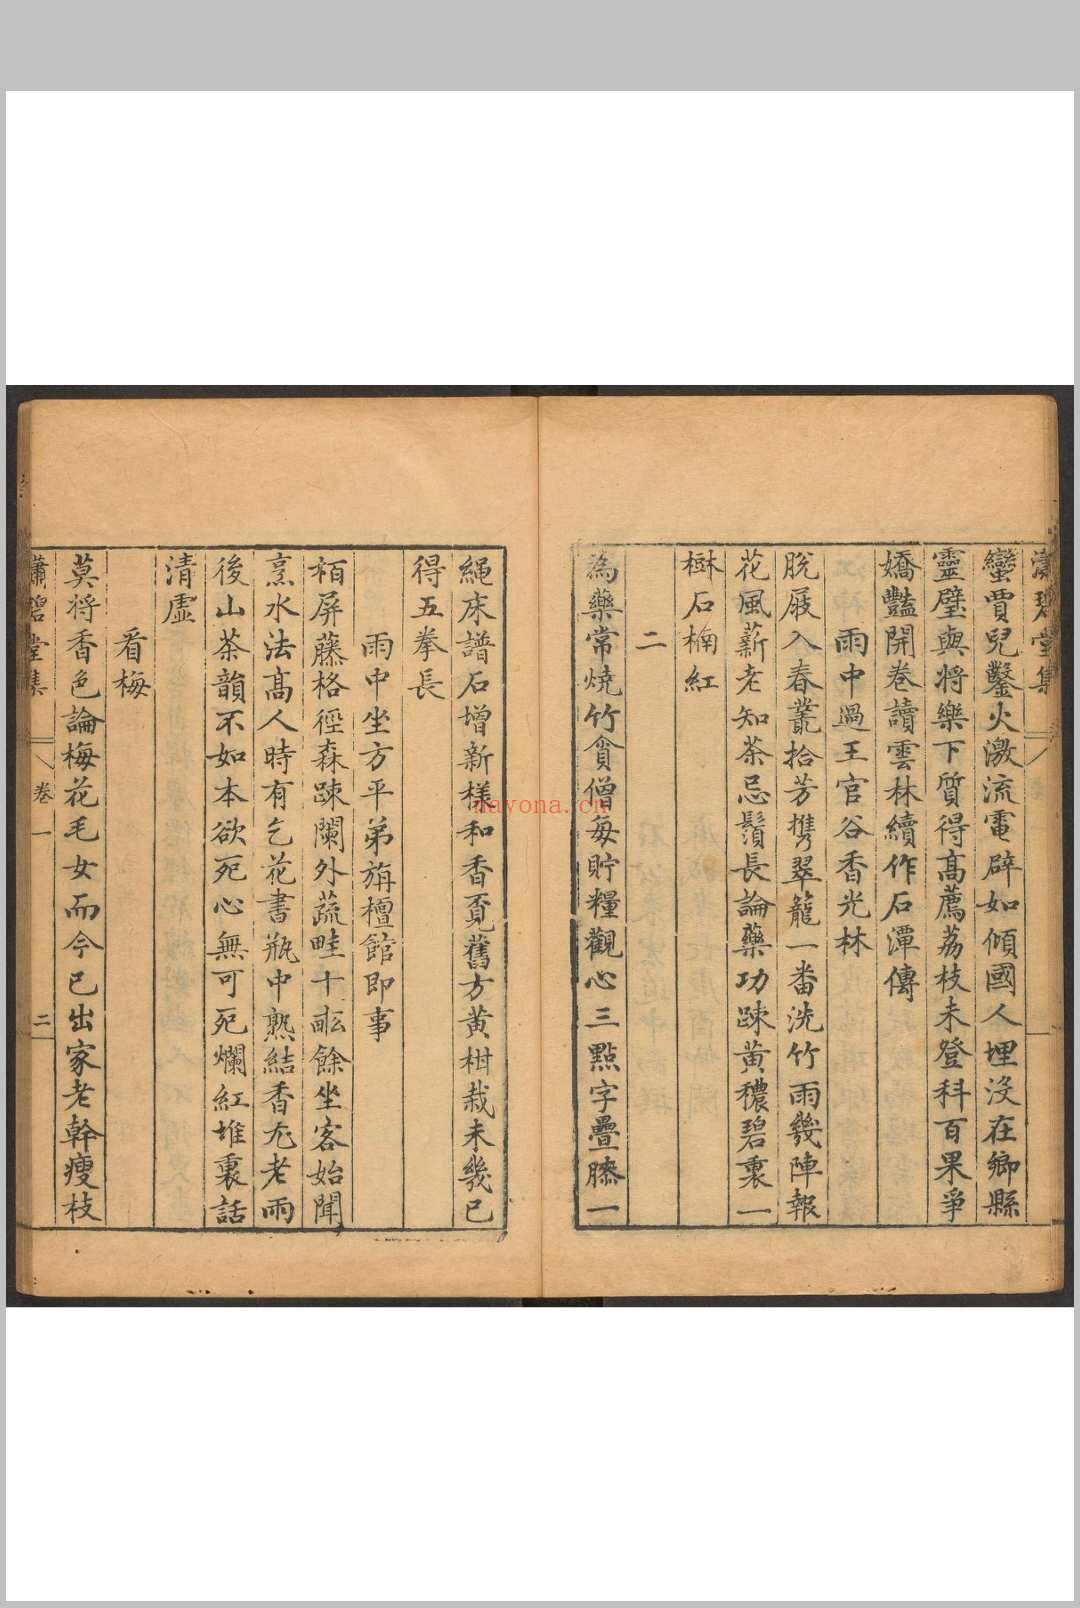 瀟碧堂集
蠻賈兒鑿火激流電辟如傾國人埋沒在鄉縣
靈壁與將樂下質得高薦荔枝未登科百果爭
嬌豔開卷讀雲林續作石潭傳
雨中過王官谷香光林
脫屐入春叢拾芳携翠籠一番洗竹雨幾陣報
花風薪老知茶忌鬚長論藥功踈黃穠碧裏一
樹石楠紅
二
為藥常燒竹貧僧每貯糧觀心三點字疊膝一
繩床譜石增新樣和香覔舊方黃柑栽未幾已
得五拳長
雨中坐方平弟旃檀館即事
栢屏藤格徑森踈闌外蔬畦十畝餘坐客始聞
烹水法高人時有乞花書瓶中熟結香尤老雨
後山茶韻不如本欲死心無可死爛紅堆裏話
清虛
看梅
莫將香色論梅花毛女而今已出家老幹瘦枝
瀟碧堂集 卷一 二
nayona.cn